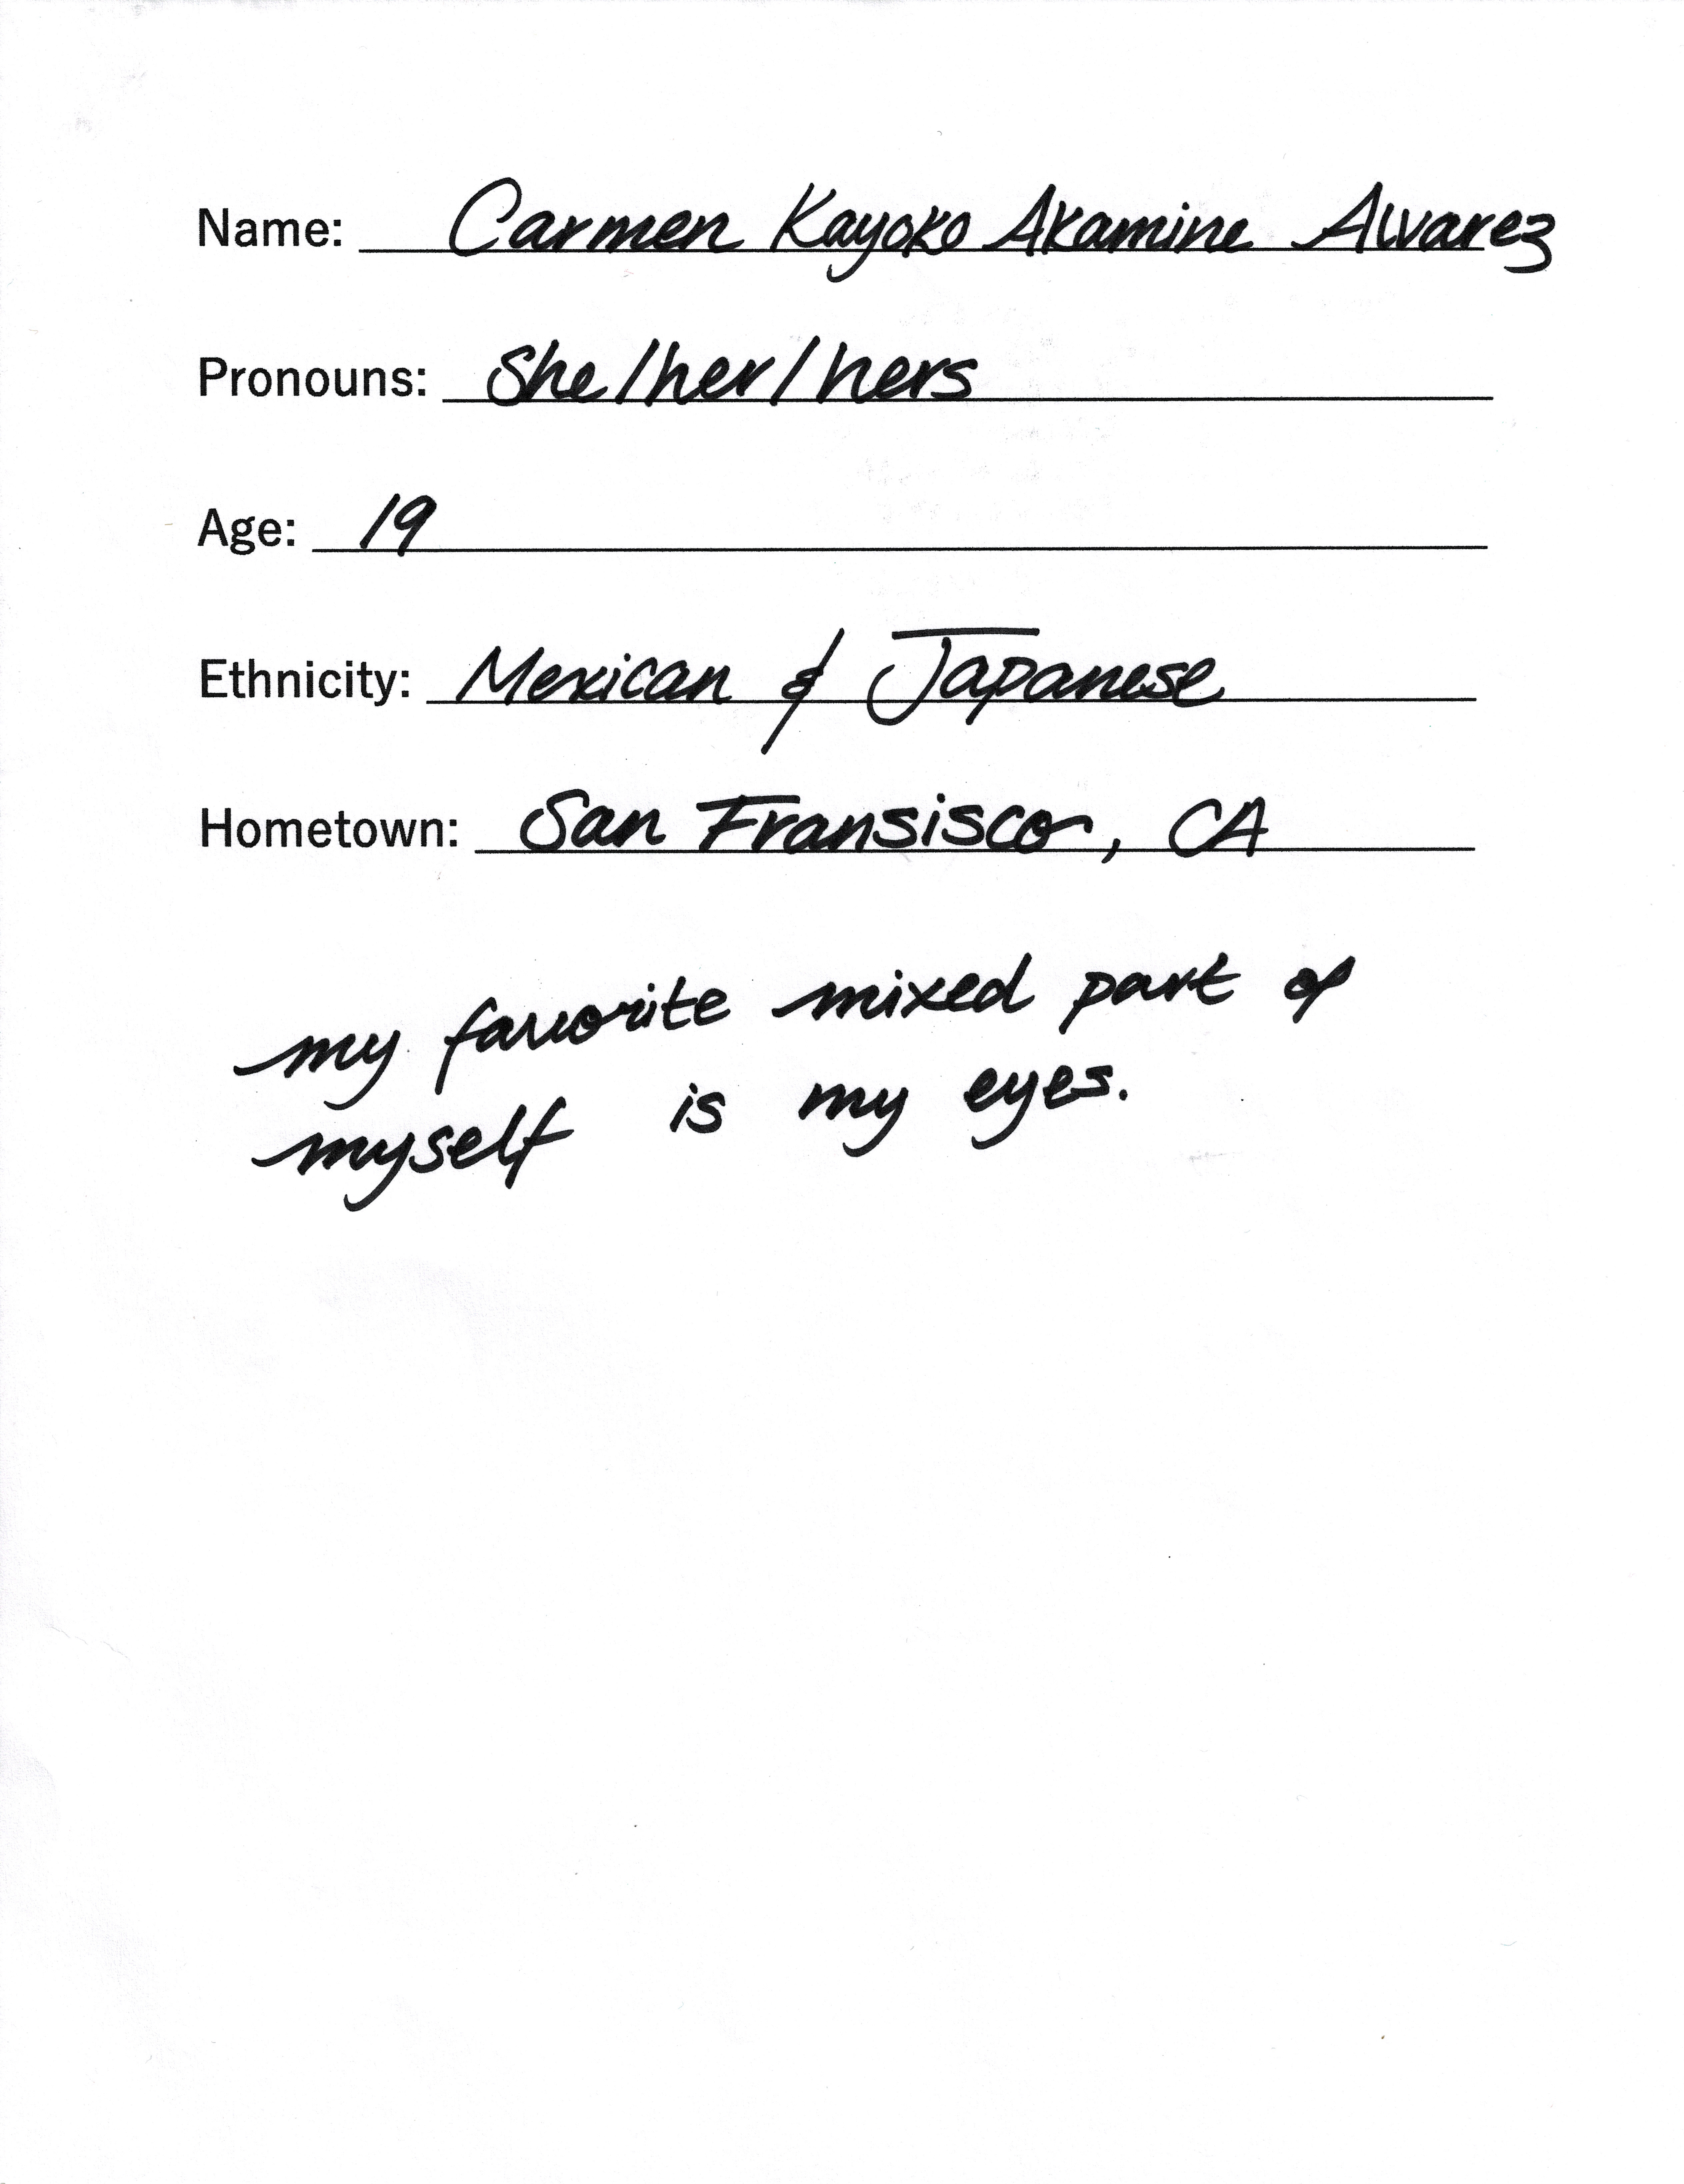 Name: Carmen Kayoko Akamine Alvarez
Pronouns: She/her/hers
Age: 19
Ethnicity: Mexican & Japanese
Hometown: San Fransisco, CA
my favorite mixed part of
myself is my eyes.